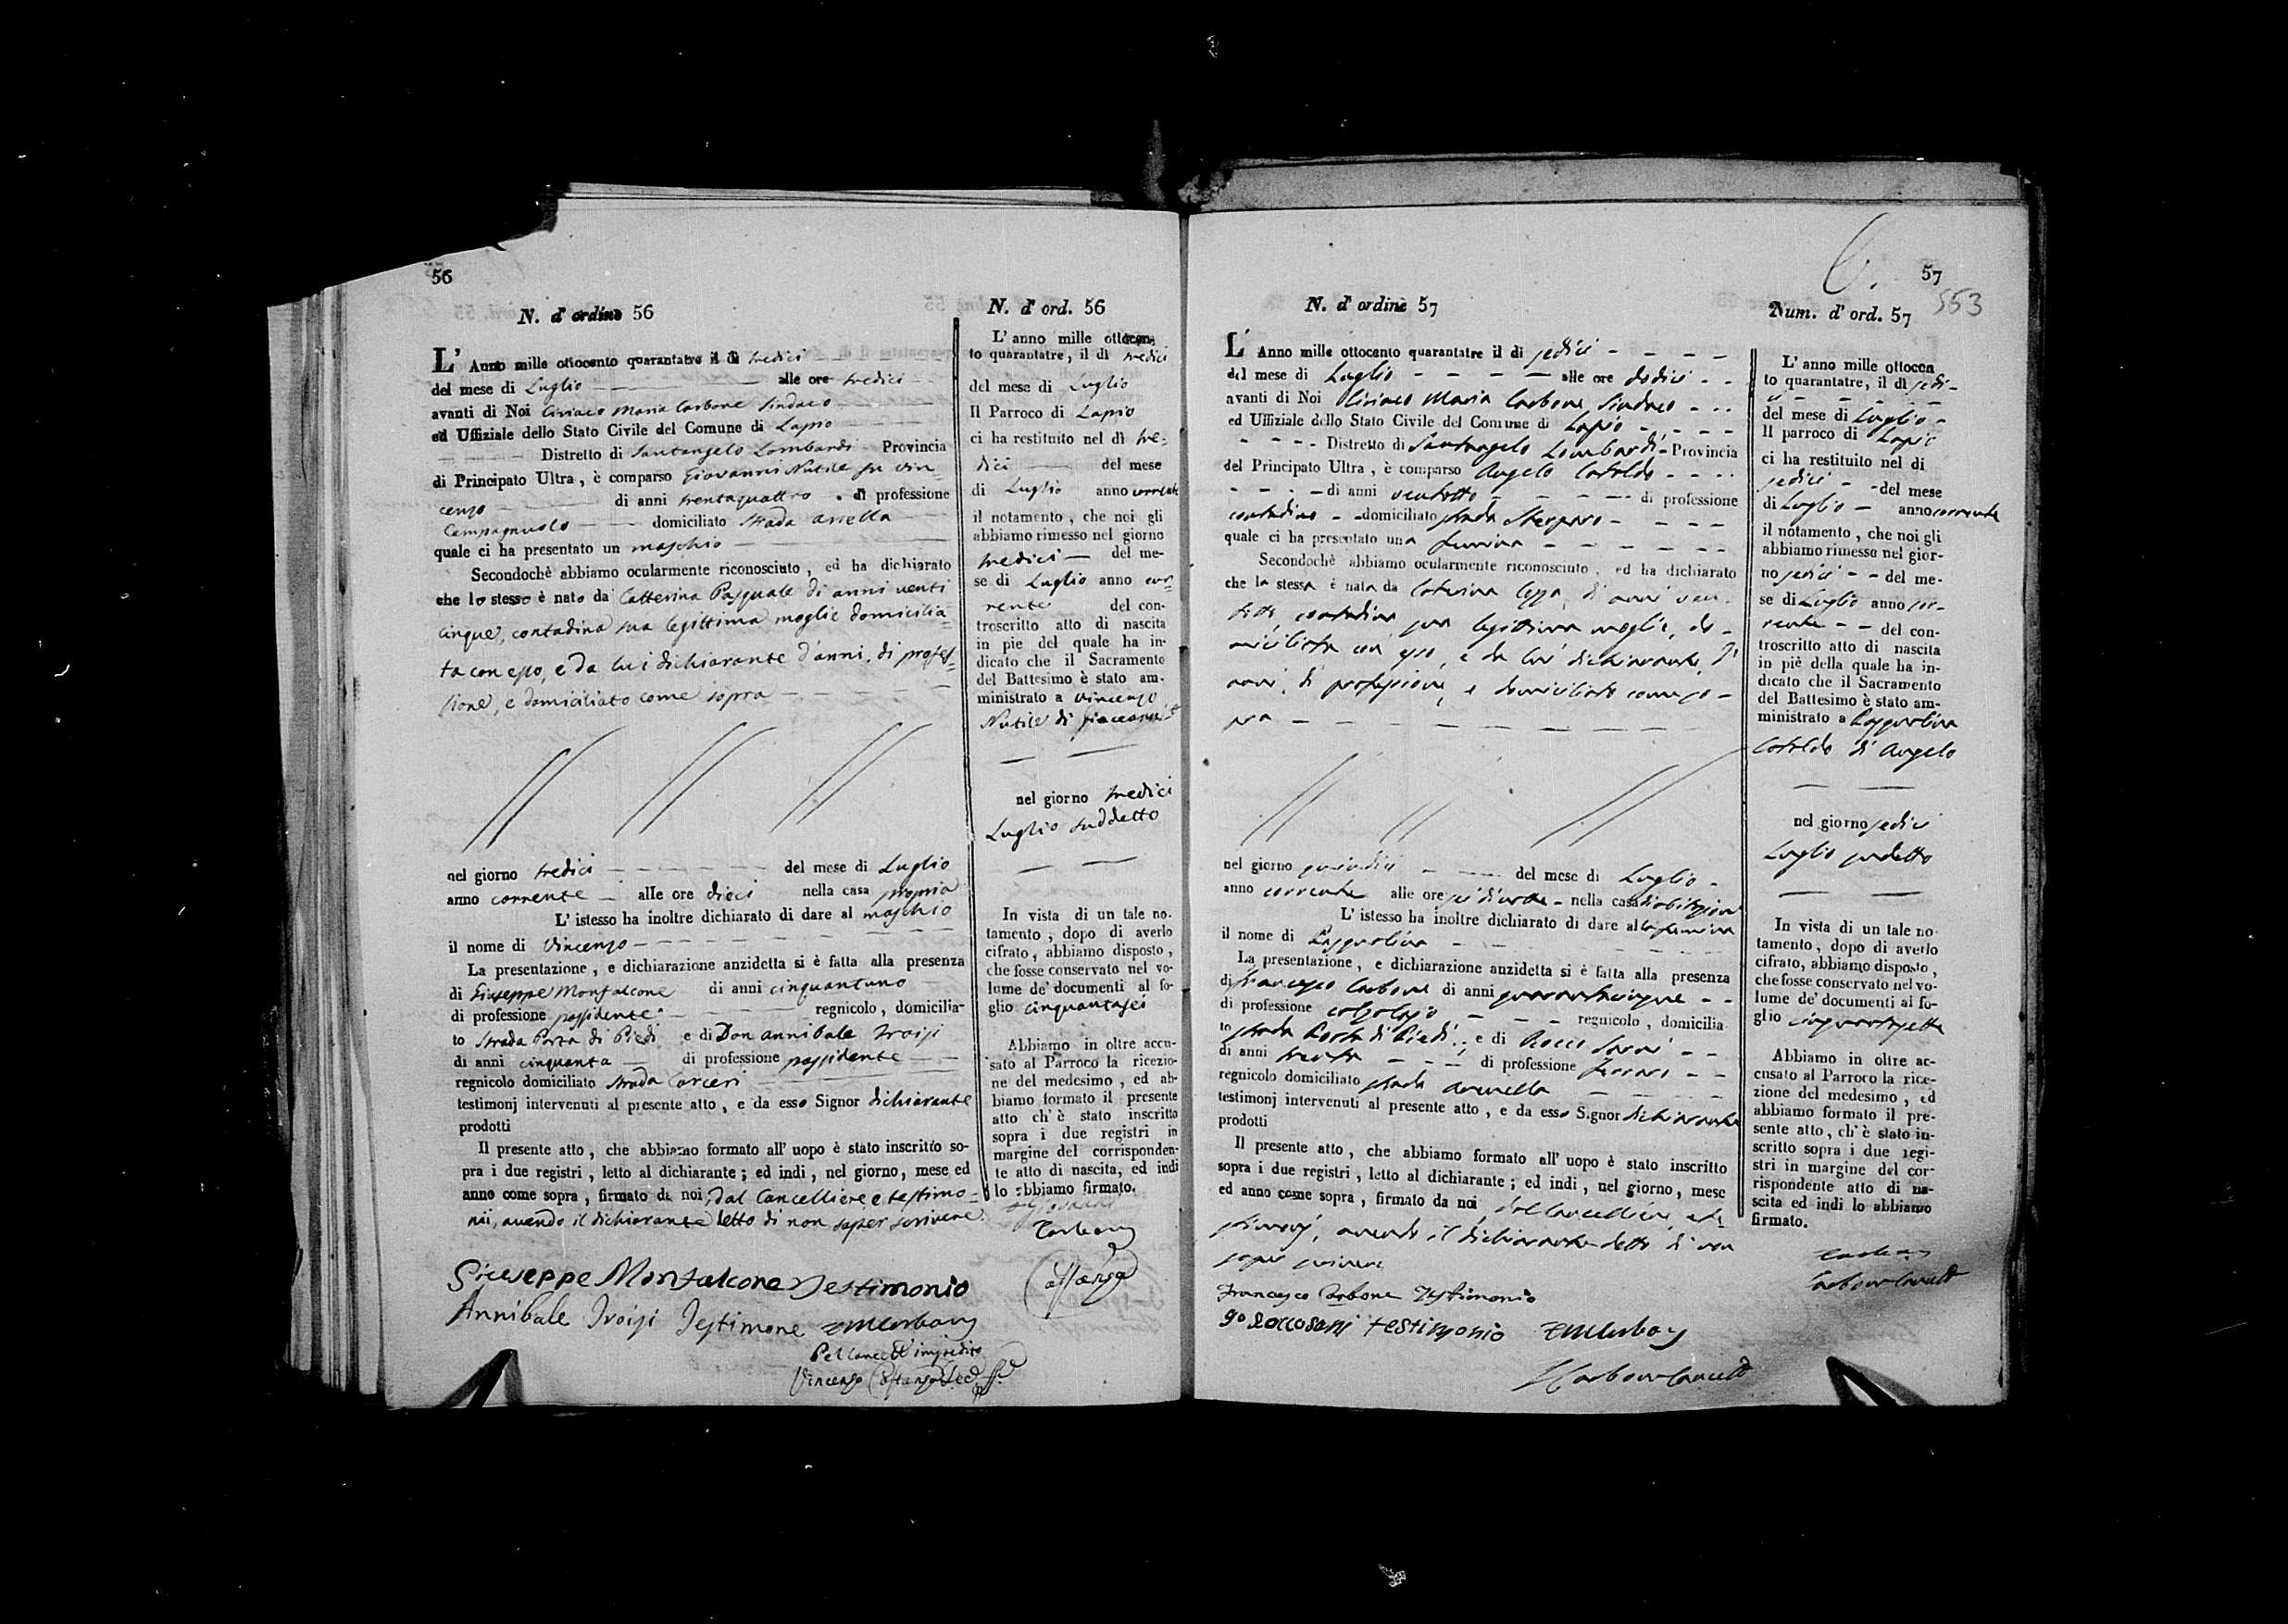 56
N. d' ordine 56
L' Anno mille ottocento quarantatre il dì tredici
del mese di Luglio alle ore tredici
avanti di Noi Ciriaco Maria Carbone Sindaco
ed Uffiziale dello Stato Civile del Comune di Lapio
Distretto di Santangelo Lombardi Provincia
di Principato Ultra, è comparso Giovanni Nutile fu Vin
cenzo di anni trentaquattro di professione
Campagnuolo domiciliato strada
quale ci ha presentato un maschio
Secondochè abbiamo ocularmente riconosciuto, ed ha dichiarato
che lo stesso è nato da Catterina Pasquale di anni venti
cinque, contadina sua legittima moglie domicilia=
ta con esso, e da lui dichiarante d'anni, di profes=
sione, e domiciliato come sopra
nel giorno tredici del mese di Luglio
anno corrente alle ore dieci nella casa propria
L' istesso ha inoltre dichiarato di dare al maschio
il nome di Vincenzo
La presentazione, e dichiarazione anzidetta si è fatta alla presenza
di Giuseppe Monfalcone di anni cinquantuno
di professione possidente regnicolo, domicilia-
to strada Porta di Piedi e di Don Annibale Troisi
di anni cinquanta di professione possidente
regnicolo domiciliato strada Carceri
testimonj intervenuti al presente atto, e da esso Signor dichiarante
prodotti
Il presente atto, che abbiamo formato all' uopo è stato inscritto so-
pra i due registri, letto al dichiarante; ed indi, nel giorno, mese ed
anno come sopra, firmato da noi, dal Cancelliere e testimo=
nii, avendo il dichiarante detto di non saper scrivere
Giuseppe Monfalcone Testimonio
Annibale Troisi Testimone CMCarbone
Pel Cancell. impedito
Vincenzo
N. d' ord. 56
L' anno mille ottocen-
to quarantatre, il dì tredici
del mese di Luglio
Il Parroco di Lapio
ci ha restituito nel dì tre=
dici del mese
di Luglio anno corrente
il notamento, che noi gli
abbiamo rimesso nel giorno
tredici del me-
se di Luglio anno cor=
rente del con-
troscritto atto di nascita
in pie del quale ha in-
dicato che il Sacramento
del Battesimo è stato am-
ministrato a Vincenzo
Nutile di Giovanni
nel giorno tredici
Luglio suddetto
In vista di un tale no-
tamento, dopo di averlo
cifrato, abbiamo disposto,
che fosse conservato nel vo-
lume de' documenti al fo-
glio cinquantasei
Abbiamo in oltre accu-
sato al Parroco la ricezio-
ne del medesimo, ed ab-
biamo formato il presente
atto ch' è stato inscritto
sopra i due registri in
margine del corrisponden-
te atto di nascita, ed indi
lo abbiamo firmato.
Carbone
57
553
N. d' ordine 57
L' Anno mille ottocento quarantatre il di sedici
del mese di Luglio alle ore dodici
avanti di Noi Ciriaco Maria Carbone Sindaco
ed Uffiziale dello Stato Civile del Comune di Lapio
Distretto di Santangelo Lombardi Provincia
del Principato Ultra, è comparso Angelo Cataldo
di anni ventotto di professione
contadino domiciliato strada
quale ci ha presentato una femina
Secondochè abbiamo ocularmente riconosciuto, ed ha dichiarato
che la stessa è nata da Caterina di anni ven-
contadina sua legittima moglie, do-
miciliata con esso, e da lui dichiarante, d'
anni, di professione, e domiciliato come so-
pra
nel giorno quindici del mese di Luglio
anno corrente alle ore nella casa d'abitazione
L' istesso ha inoltre dichiarato di dare alla femina
il nome di Pasqualina
La presentazione, e dichiarazione anzidetta si è fatta alla presenza
di Francesco Carbone di anni quarantacinque
di professione calzolajo regnicolo, domicilia-
to strada Porta di Piedi, e di Rocco Sarni
di anni trenta di professione ferraro
regnicolo domiciliato strada
testimonj intervenuti al presente atto, e da esso Signor dichiarante
prodotti
Il presente atto, che abbiamo formato all' uopo è stato inscritto
sopra i due registri, letto al dichiarante; ed indi, nel giorno, mese
ed anno come sopra, firmato da noi, dal Cancelliere, e te-
stimonj, avendo il dichiarante detto di non
saper scrivere
Francesco Carbone Testimonio
testimonio CMCarbone
Carbone Cancell.
Num. d' ord. 57
L' anno mille ottocen
to quarantatre, il dì sedi-
ci
del mese di Luglio
Il parroco di Lapio
ci ha restituito nel di
sedici del mese
di Luglio anno corrente
il notamento, che noi gli
abbiamo rimesso nel gior-
no sedici del me-
se di Luglio anno cor-
rente del con-
troscritto atto di nascita
in piè della quale ha in-
dicato che il Sacramento
del Battesimo è stato am-
ministrato a Pasqualina
Cataldo di Angelo
nel giorno sedici
Luglio sudetto
In vista di un tale no-
tamento, dopo di averlo
cifrato, abbiamo disposto,
che fosse conservato nel vo-
lume de' documenti al fo-
glio cinquantasette
Abbiamo in oltre ac-
cusato al Parroco la rice-
zione del medesimo, ed
abbiamo formato il pre-
sente atto, ch' è stato in-
scritto sopra i due regi-
stri in margine del cor-
rispondente atto di na-
scita ed indi lo abbiamo
firmato.
Carbone
Carbone Cancell.